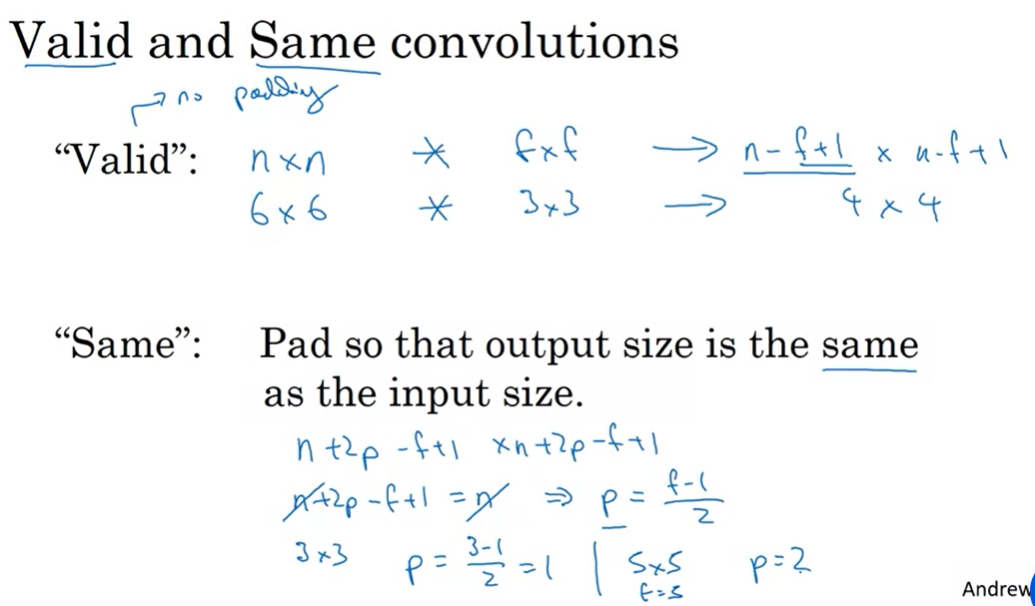 Valid and Same convolutions
→ no padding
“Valid”: n×n * f×f → n-f+1 × n-f+1
6×6 * 3×3 → 4×4
“Same”: Pad so that output size is the same
as the input size.
n+2p-f+1 ×n+2p-f+1
n+2p-f+1=n ⇒ p = f-1/2
3×3 p = 3-1/2 = 1 | 5×5 p=2
f=5
Andrew